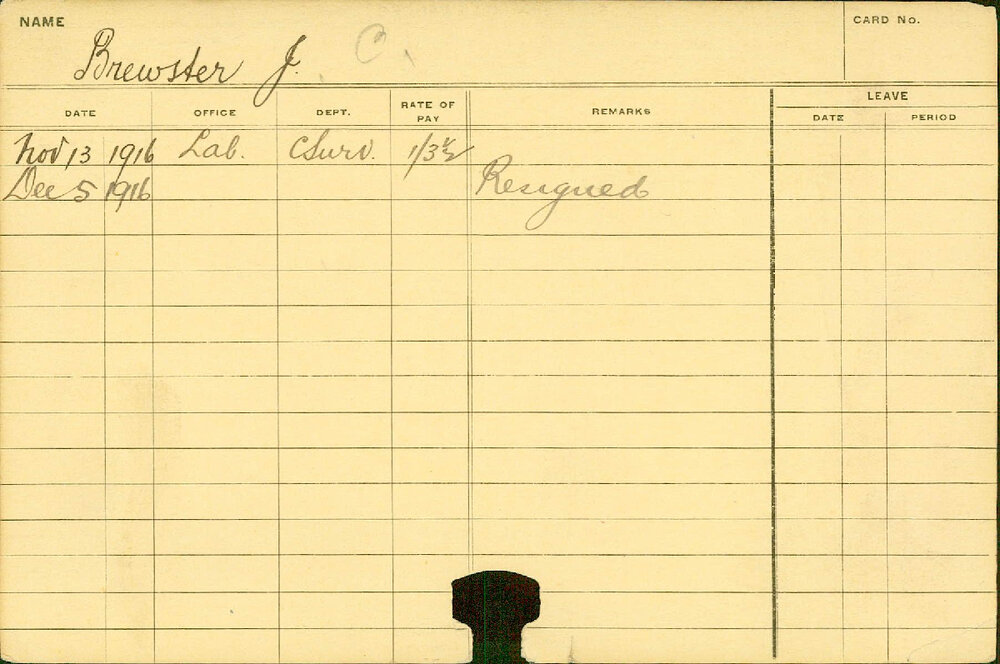 NAME
CARD No.
Brewster J. C.
DATE OFFICE DEPT. RATE OF PAY REMARKS LEAVE
DATE PERIOD
Nov 13 1916 Lab. CSurv. 1/3½
Dec 5 1916 Resigned